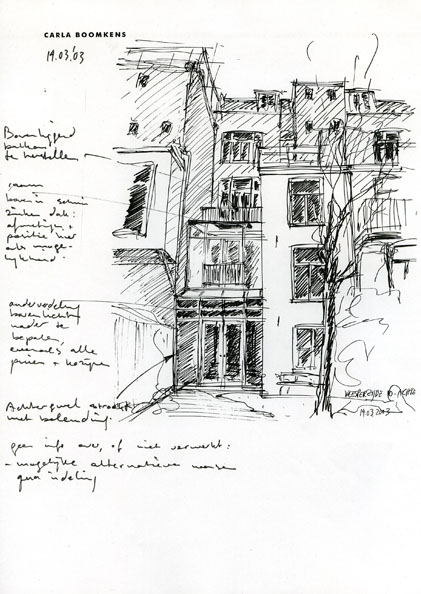 CARLA BOOMKENS
19.03.'03
Bovenliggend
balkon
te herstellen
raam
boven in schuin
zinken dak:
afmetingen
positie
als moge-
lijkheid.
onderverdeling
bovenlicht
nader te
bepalen,
evenals alle
puien + kozijnen
Achtergevel
met belending.
geen info over, of niet verwerkt:
- mogelijke alternatieve wensen
qua indeling
19.03.2003